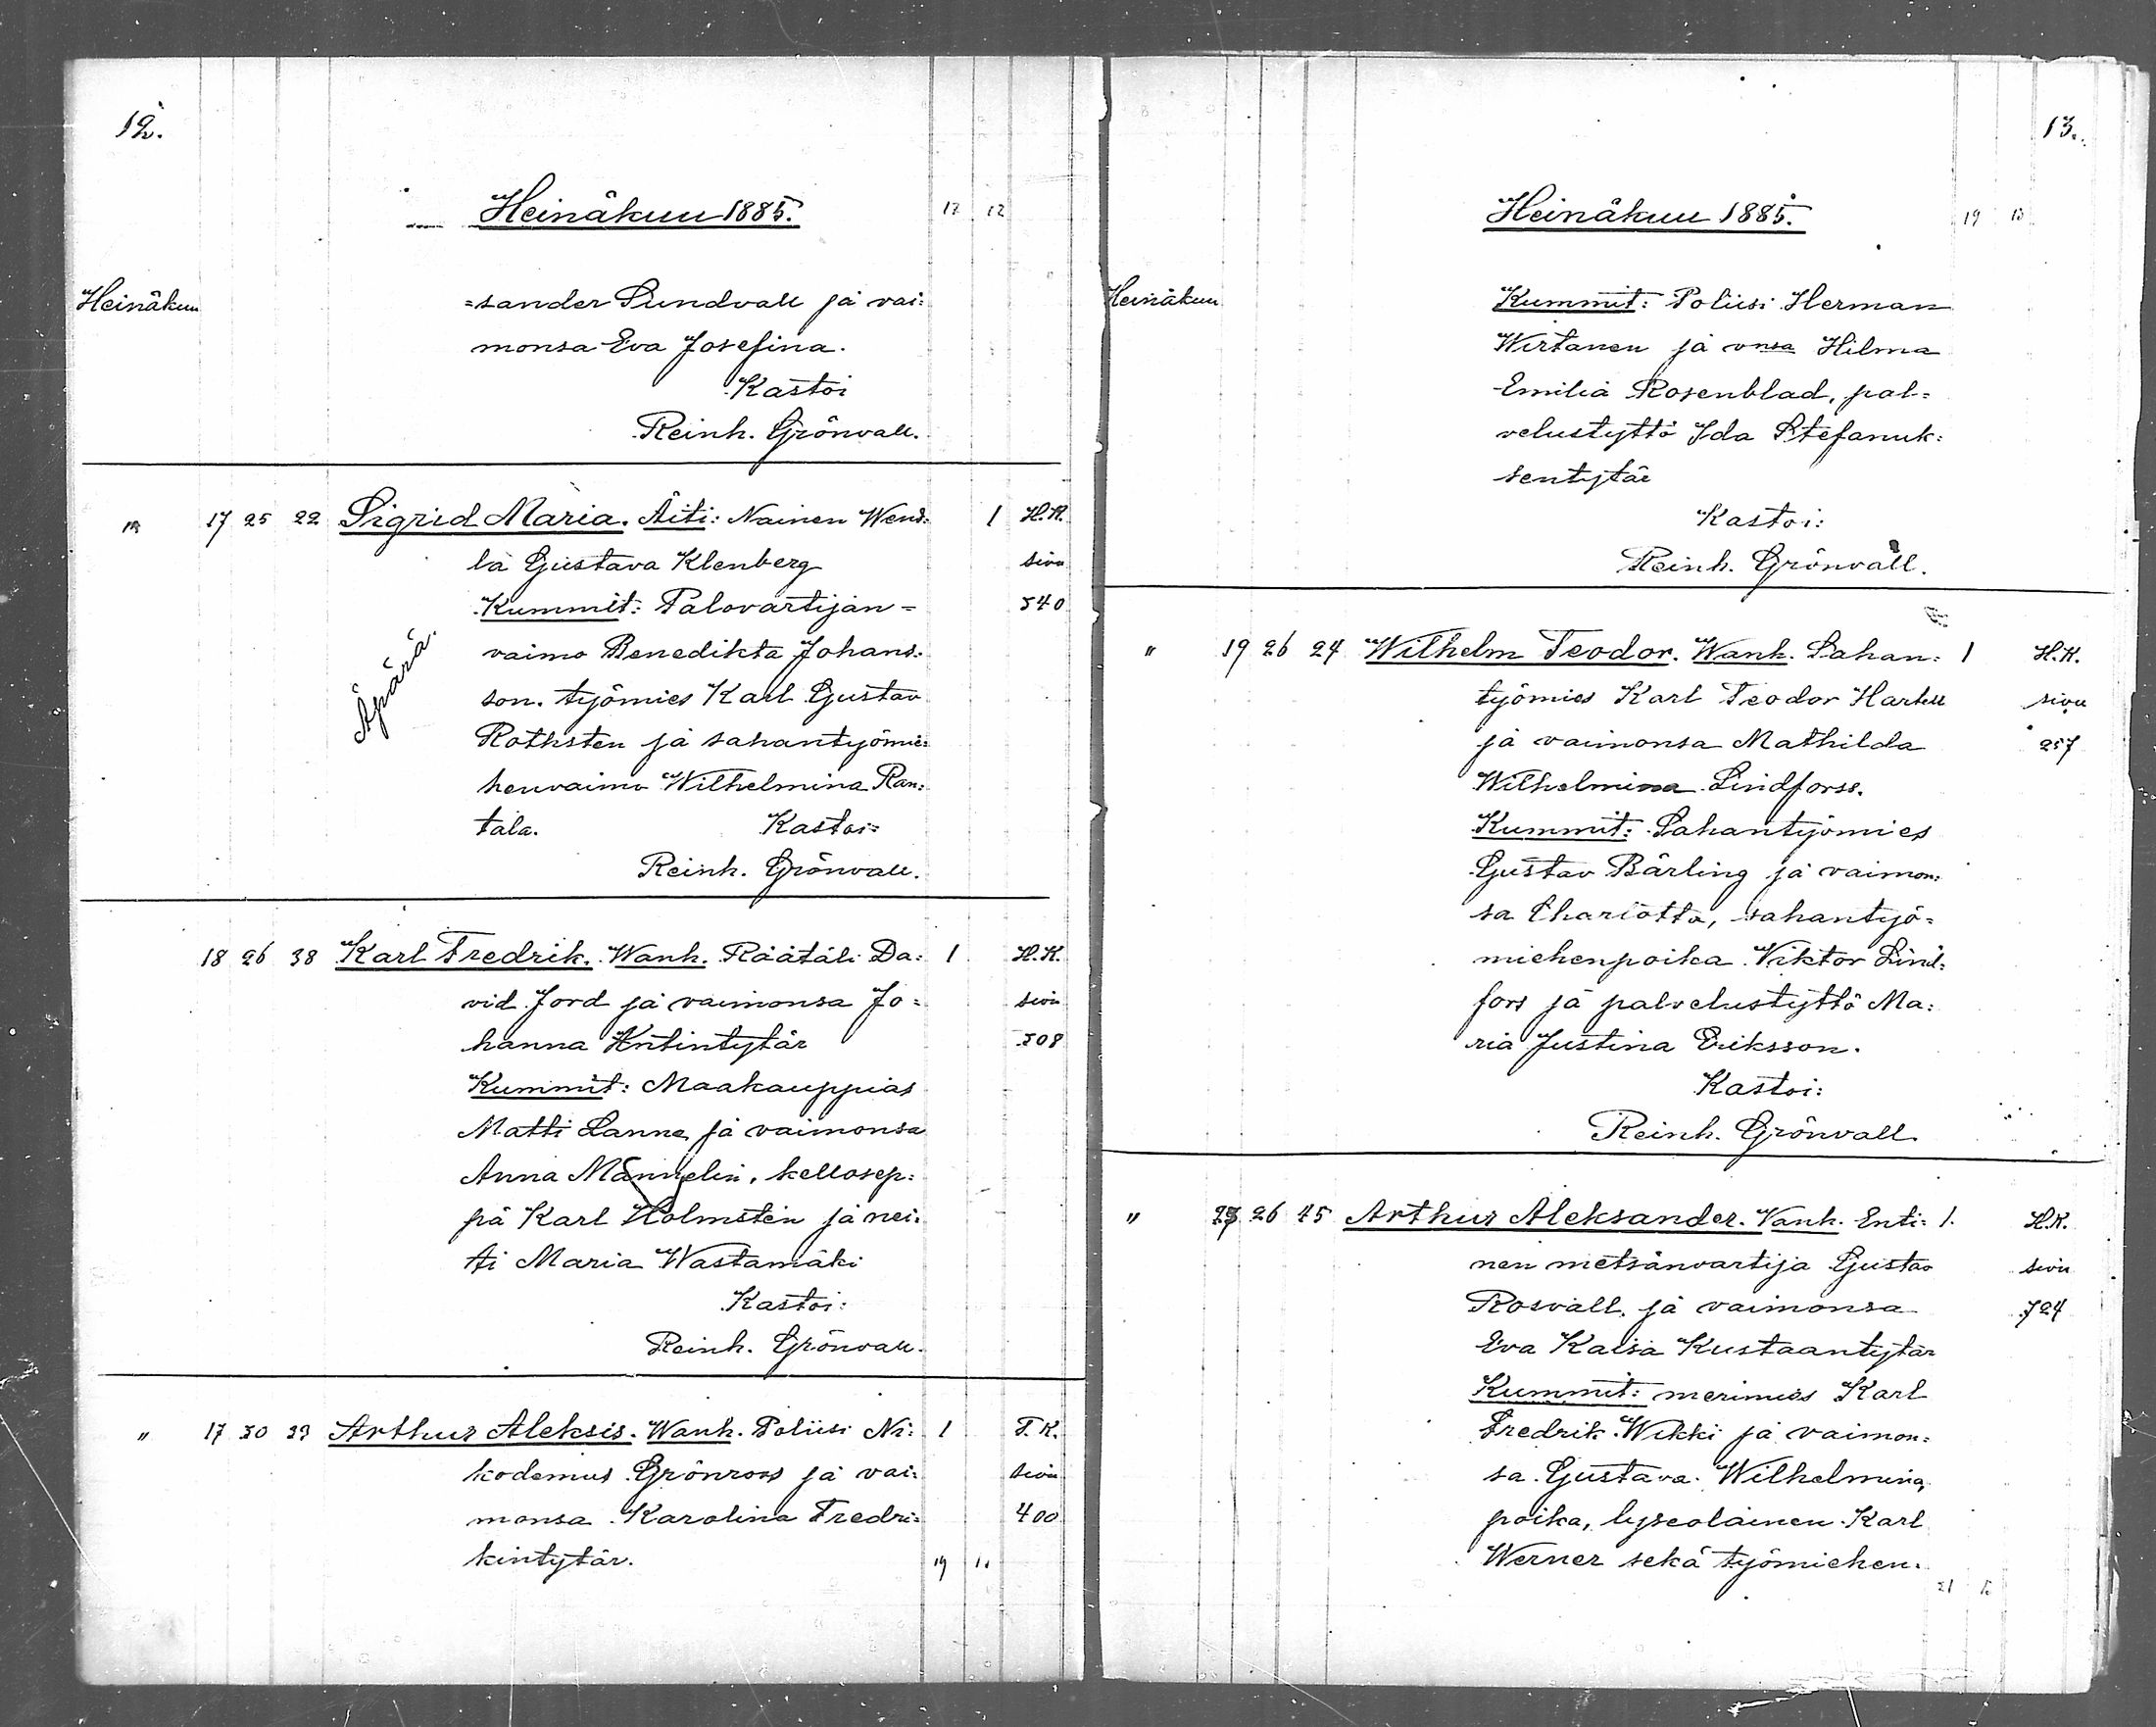 12.
Heinäkuu 1885. 17 12
Heinäkuu =sander Sundvall ja vai=
monsa Eva Josefina.
Kastoi
Reinh. Grönvall.
" 17 25 22 Sigrid Maria. Äiti: Nainen Wend= 1 H.K.
la Gustava Klenberg sivu
Kummit: Palovartijan= 540
Äpärä. vaimo Benedikta Johans=
son. työmies Karl Gustav
Rothsten ja sahantyömie=
henvaimo Wilhelmina Ran=
tala. Kastoi:
Reinh. Grönvall.
18 26 38 Karl Fredrik. Wanh. Räätäli Da= 1 H.K.
vid Jord ja vaimonsa Jo= sivu
hanna Antintytär 508
Kummit: Maakauppias
Matti Lanne ja vaimonsa
Anna Mannelin, kellosep=
pä Karl Holmstén ja nei=
ti Maria Wastamäki
Kastoi:
Reinh. Grönvall.
" 17 30 23 Arthur Aleksis. Wanh. Poliisi Ni= 1 T.K.
kodemus Grönroos ja vai= sivu
monsa Karolina Fredri= 400
kintytär. 19 11
13.
Heinäkuu 1885. 19 13
Heinäkuu Kummit: Poliisi Herman
Wirtanen ja vnsa Hilma
Emilia Rosenblad, pal=
velustyttö Ida Stefanuk=
sentytär
Kastoi:
Reinh. Grönvall.
" 19 26 24 Wilhelm Teodor. Wanh. Sahan= 1 H.K.
työmies Karl Teodor Hartell sivu
ja vaimonsa Mathilda 257
Wilhelmina Lindforss.
Kummit: Sahantyömies
Gustav Bärling ja vaimon=
sa Charlotta, sahantyö=
miehenpoika Viktor Lind=
fors ja palvelustyttö Ma=
ria Justina Eriksson.
Kastoi:
Reinh. Grönvall
" 23 26 45 Arthur Aleksander. Vanh. Enti= 1. H.K.
nen metsänvartija Gustav sivu
Rosvall ja vaimonsa 724
Eva Kaisa Kustaantytär
Kummit: merimies Karl
Fredrik Wikki ja vaimon=
sa Gustava Wilhelmina,
poika, lyseolainen Karl
Werner sekä työmiehen=
21